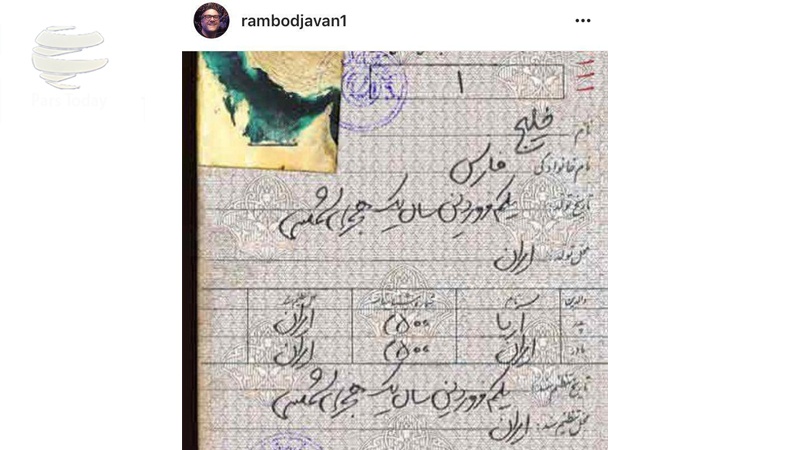 rambodjavan1
Pars Today
۱۱۱
۱
نام خلیج
نام خانوادگی فارس
تاریخ تولد: یکم فروردین سال یک هجری شمسی
محل تولد: ایران
والدین نام شماره شناسنامه محل تنظیم سند
پدر آریا ۲۵۰۰ ایران
مادر ایران ۲۵۰۰ ایران
تاریخ تنظیم سند: یکم فروردین سال یک هجری شمسی
محل تنظیم سند: ایران